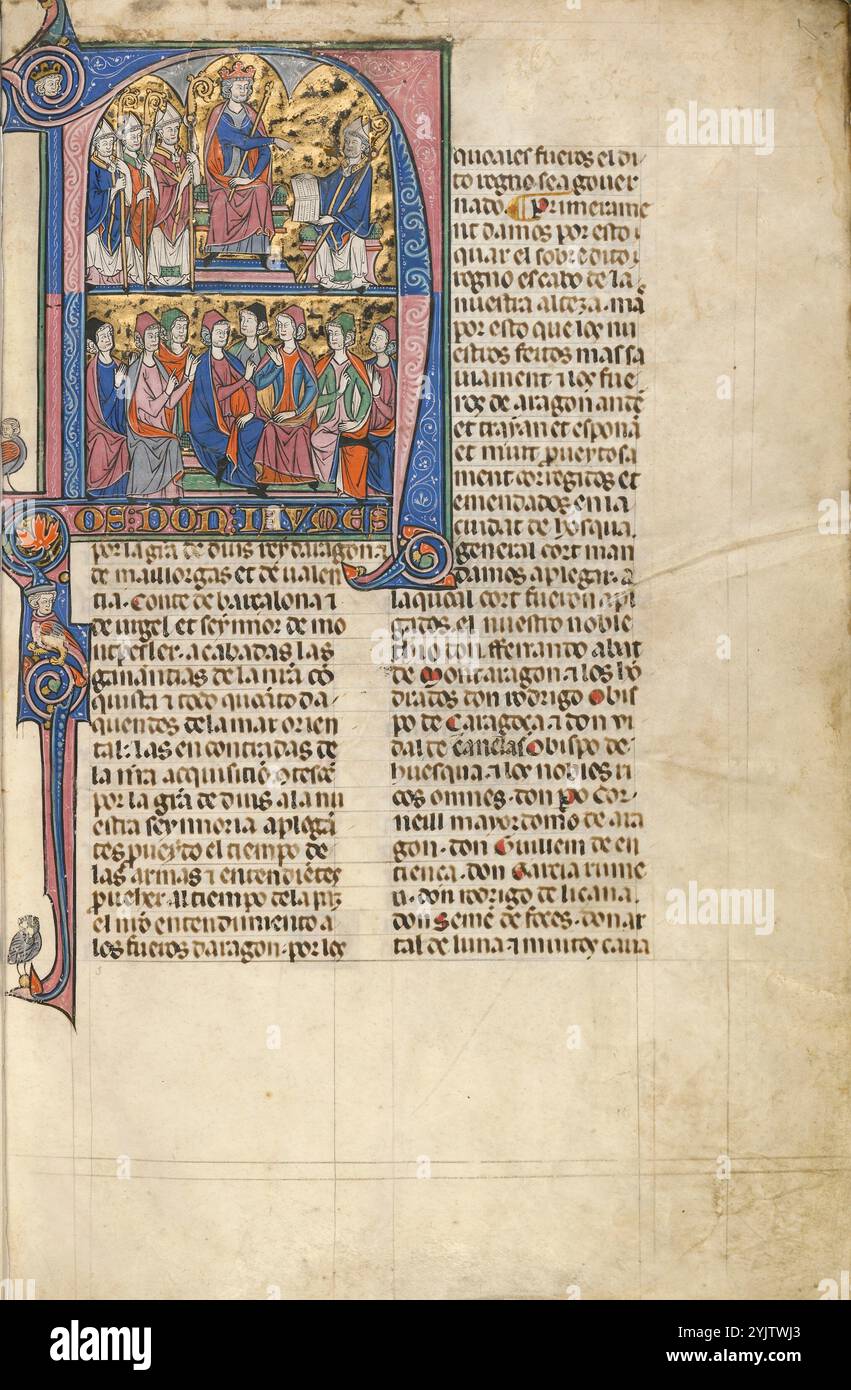 OS: DON: IAVMES
por la gr̃a de dius rey daragon ⁊
de mallorgas et de ualen
tia. Conte de barcalona ⁊
de urgel et seynnor de mo
ntpesler. acabadas las
ganantias de la nr̃a cõ
quista ⁊ todo quanto da
quendes de la mar orien
tal: las encontradas de
la nr̃a acquisitiõ
por la gr̃a de dius a la nu
estra seynnoria aplega
tes puesto el tiempo de
las armas ⁊ entendientes
prueher al tiempo de la paz
el nr̃o entendimiento a
los fueros daragon. por los
quoales fueros el di
to regno sea gouer
nado. Primerame
nt damos por esto
quar el sobredito
regno es cabo de la
nuestra alteza. mas
por esto que los nu
estros feitos mas sa
uiament ⁊ los fue
ros de aragon ante
et trayan et esponã
et muit prueytosa
ment corregitos et
emendados en la
ciudat de hosqua.
general cort man
damos aplegar. a
la quoal cort fueron apl
gados el nuestro noble
thio don fferrando abat
de Montaragon ⁊ los hõ
drados don rodrigo Obis
po de Caragoça ⁊ don vi
dal de canelas Obispo de
huesqua. ⁊ los nobles ri
cos omnes. don Po Cor
neill mayordomo de ara
gon. don Guillem de en
tienca. don Garcia rume
u. don rodrigo de licana.
don Semẽ de foces. don ar
tal de luna ⁊ muitos caua
alamy
Image ID: 2YJTWJ3
www.alamy.com